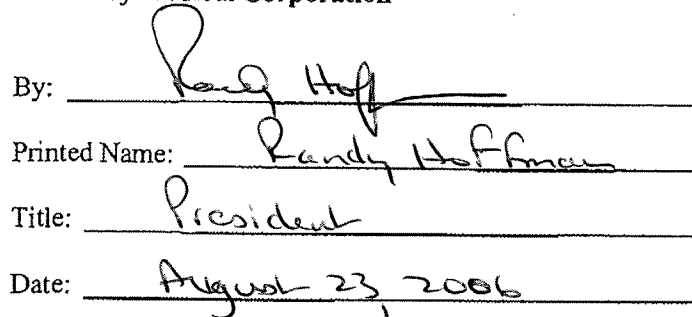 Corporation
By: Randy Hoff
Printed Name: Randy Hoffman
Title: President
Date: August 23, 2006